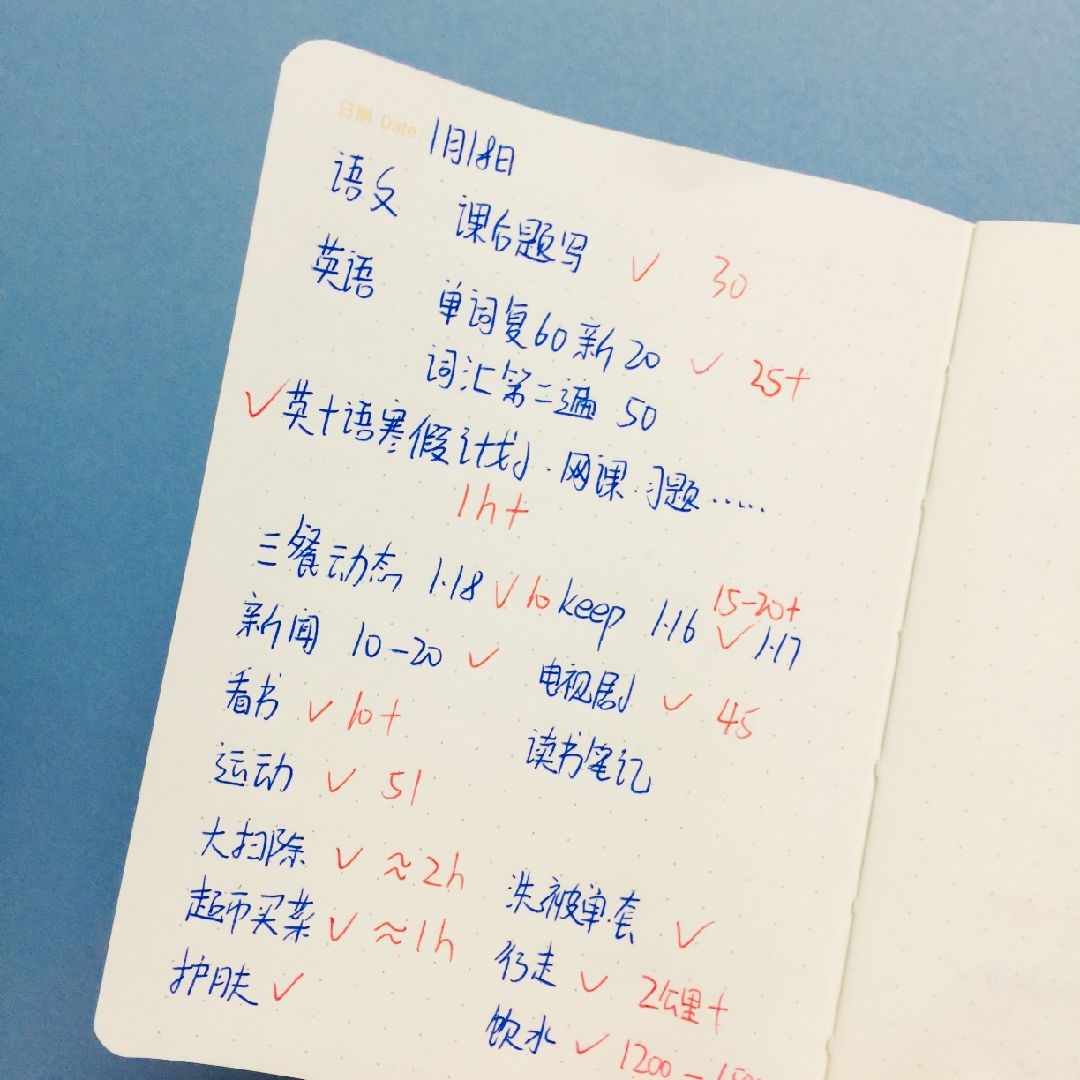 日期 Date: 1月18日
语文 课后题写 ✓ 30
英语 单词复60新20 ✓ 25+
词汇第二遍 50
✓英十语寒假计划.网课.习题……
1h+
三餐动态 1.18 ✓10 keep 1.16 ✓ 15-20+ 1.17
新闻 10-20 ✓ 电视剧 ✓ 45
看书 ✓ 10+ 读书笔记
运动 ✓ 51
大扫除 ✓ ≈2h 洗被单.套 ✓
超市买菜 ✓ ≈1h 行走 ✓ 2公里+
护肤 ✓ 饮水 ✓ 1200-